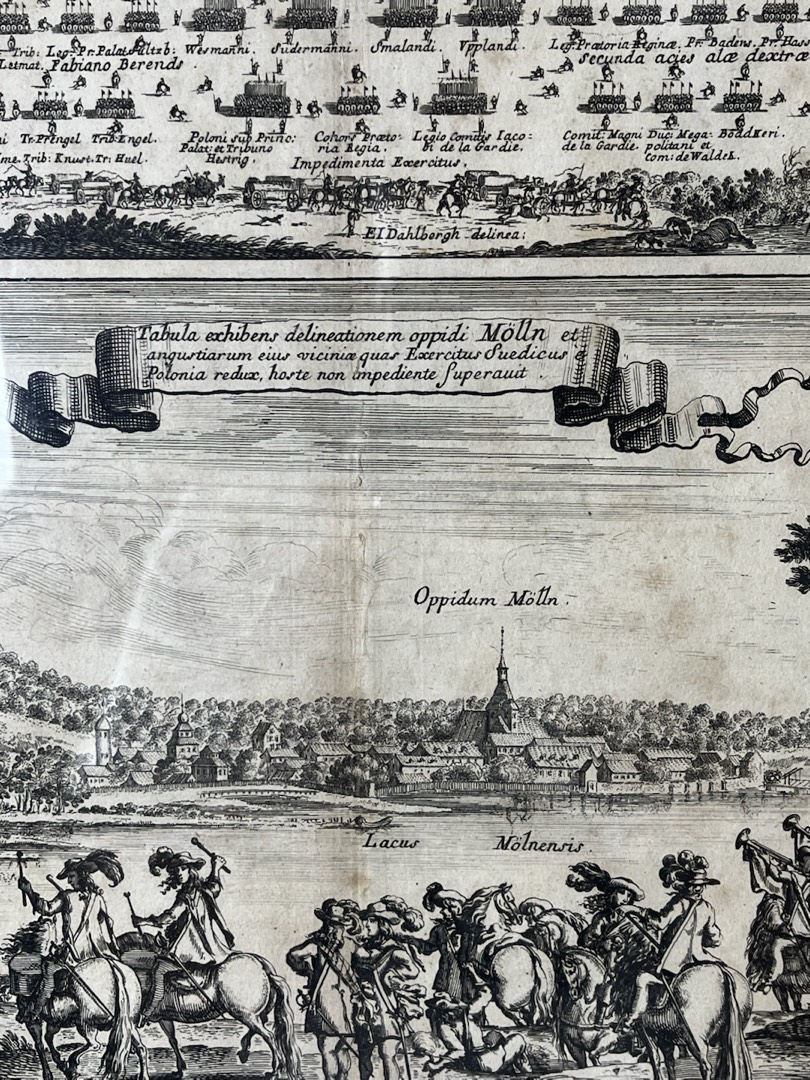 Trib: Leg: Pr: Palat: Sultzb: Wesmanni. Sudermanni. Smalandi. Vpplandi. Leg: Prætoria Reginæ. Pr: Badens. Pr: Hass
Letmat. Fabiano Berends. Secunda acies alæ dextræ
Tr: Prengel Trib: Engel. Poloni sub Princ: Cohors Præto- Legio Comitis Iaco- Comit: Magni Duc: Mega- Böddkeri.
Trib: Knust. Tr: Huel. Palat: et Tribuno ria Regia. bi de la Gardie. de la Gardie. politani et
Hestrig. Impedimenta Exercitus. Com: de Waldek.
El Dahlborgh delinea:
Tabula exhibens delineationem oppidi Mölln et
angustiarum eius viciniæ quas Exercitus Suedicus è
Polonia redux, hoste non impediente superauit.
Oppidum Mölln.
Lacus Mölnensis.